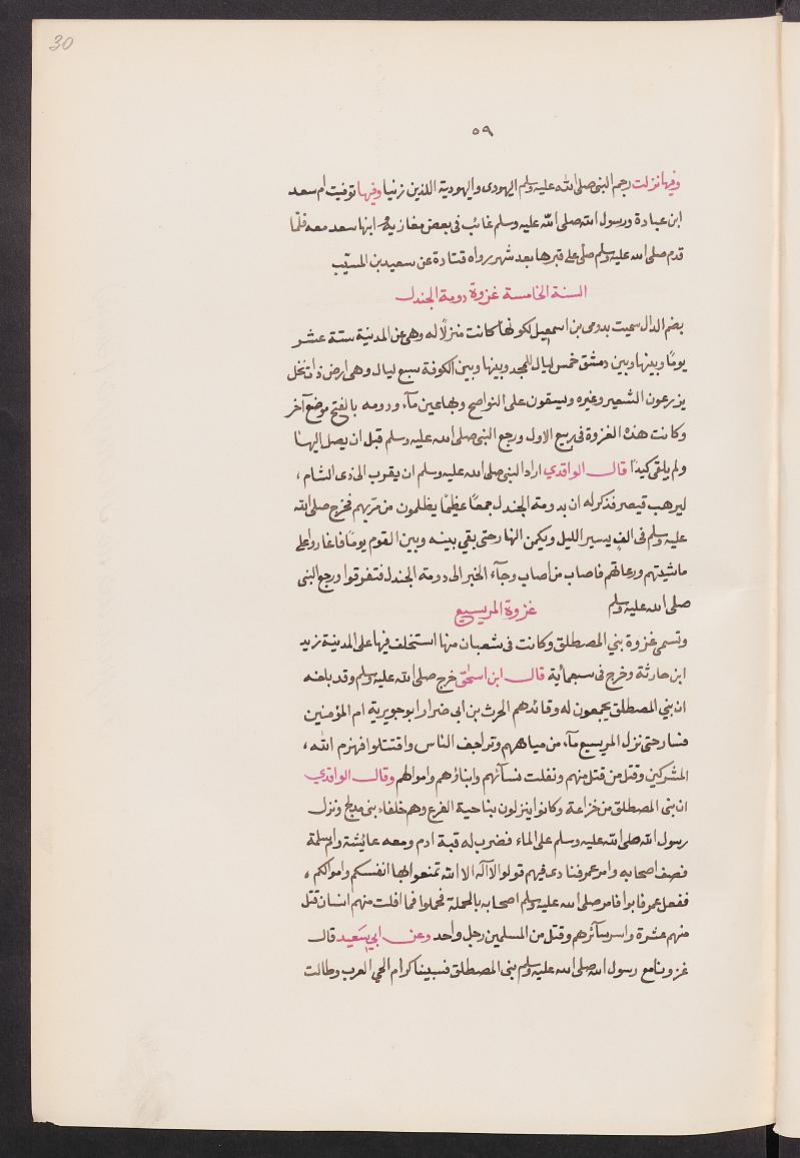 30
٥٩
وفيها نزلت رجم النبى صلى الله عليه وسلم اليهودى واليهودية اللذين زنيا وفيها توفيت ام سعد
ابن عبادة ورسول الله صلى الله عليه وسلم غائب فى بعض مغازيه وابنها سعد معه فلمّا
قدم صلى الله عليه وسلم صلى على قبرها بعد شهر رواه قتادة عن سعيد بن المسيّب
السنة الخامسة غزوة دومة الجندل
بضم الدال سميت بدومى بن اسمعيل لكونها كانت منزلًا له وهى عن المدنية ستة عشر
يومًا وبينها وبين دمشق خمس ليال للمجد وبينها وبين الكوفة سبع ليال وهى ارض ذات نخل
يزرعون الشعير وغيره ويسقون على النواضح وبها عين مآء ودومه بالفتح موضع آخر
وكانت هذه الغزوة فى ربيع الاول ورجع النبى صلى الله عليه وسلم قبل ان يصل اليها
ولم يلق كيدًا قال الواقدي اراد النبى صلى الله عليه وسلم ان يقرب الى ذى الشام ،
ليرهب قيصر فذكر له ان بدومة الجندل جمعًا عظيمًا يظلمون من مرّ بهم فخرج صلى الله
عليه وسلم فى الف يسير الليل ويكمن النهار حتى بقي بينه وبين القوم يومًا فاغاروا على
ماشيتهم ورعاتهم فاصاب من اصاب وجآء الخبر الى دومة الجندل فتفرقوا ورجع النبى
صلى الله عليه وسلم غزوة المريسيع
وتسمى غزوة بني المصطلق وكانت فى شعبان منها استخلف فيها على المدنية زيد
ابن حارثة وخرج فى سبعمأية قال ابن اسحق خرج صلى الله عليه وسلم وقد بلغه
ان بني المصطلق يجمعون له وقائدهم الحرث بن ابى ضرار ابو جويرية ام المؤمنين
فسار حتى نزل المريسيع مآء من مياههم وتراجف الناس واقتتلوا فهزم الله ،
المشركين وقتل من قتل منهم ونفلت نسآئهم وابناؤهم واموالهم وقال الواقدي
ان بنى المصطلق من خزاعة وكانوا ينزلون بناحية الفرع وهم خلفاء بنى مدلج ونزل
رسول الله صلى الله عليه وسلم على الماء فضرب له قبة ادم ومعه عايشة وام سلمة
فصف اصحابه وامر عمر فنادى فيهم قولوا لا اله الا الله تمنعوا بها انفسكم واموالكم ،
ففعل عمر فابوا فامر صلى الله عليه وسلم اصحابه بالحملة فحملوا فما افلت منهم انسان قتل
منهم عشرة واسر سآئرهم وقتل من المسلمين رجل واحد وعن ابي سَعيد قال
غزونا مع رسول الله صلى الله عليه وسلم بنى المصطلق فسبينا كرام الحي العرب وطالت